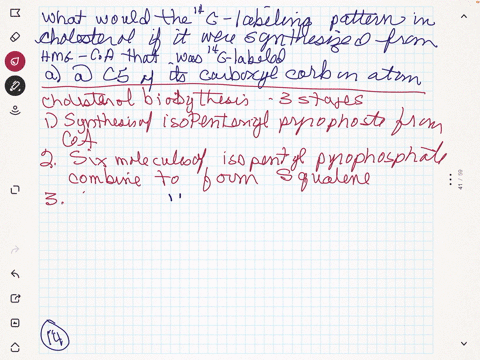 what would the 14C-labeling pattern in
cholesterol if it were synthesized from
HMG-CoA that was 14C-labeled
a) a) C5 of its carboxyl carbon atom
cholesterol biosythesis - 3 stages
1) Synthesis of isopentenyl pyrophosphate from
CoA
2. Six molecules of isopentyl pyrophosphate
combine to form Squalene
3.
14
41 / 59